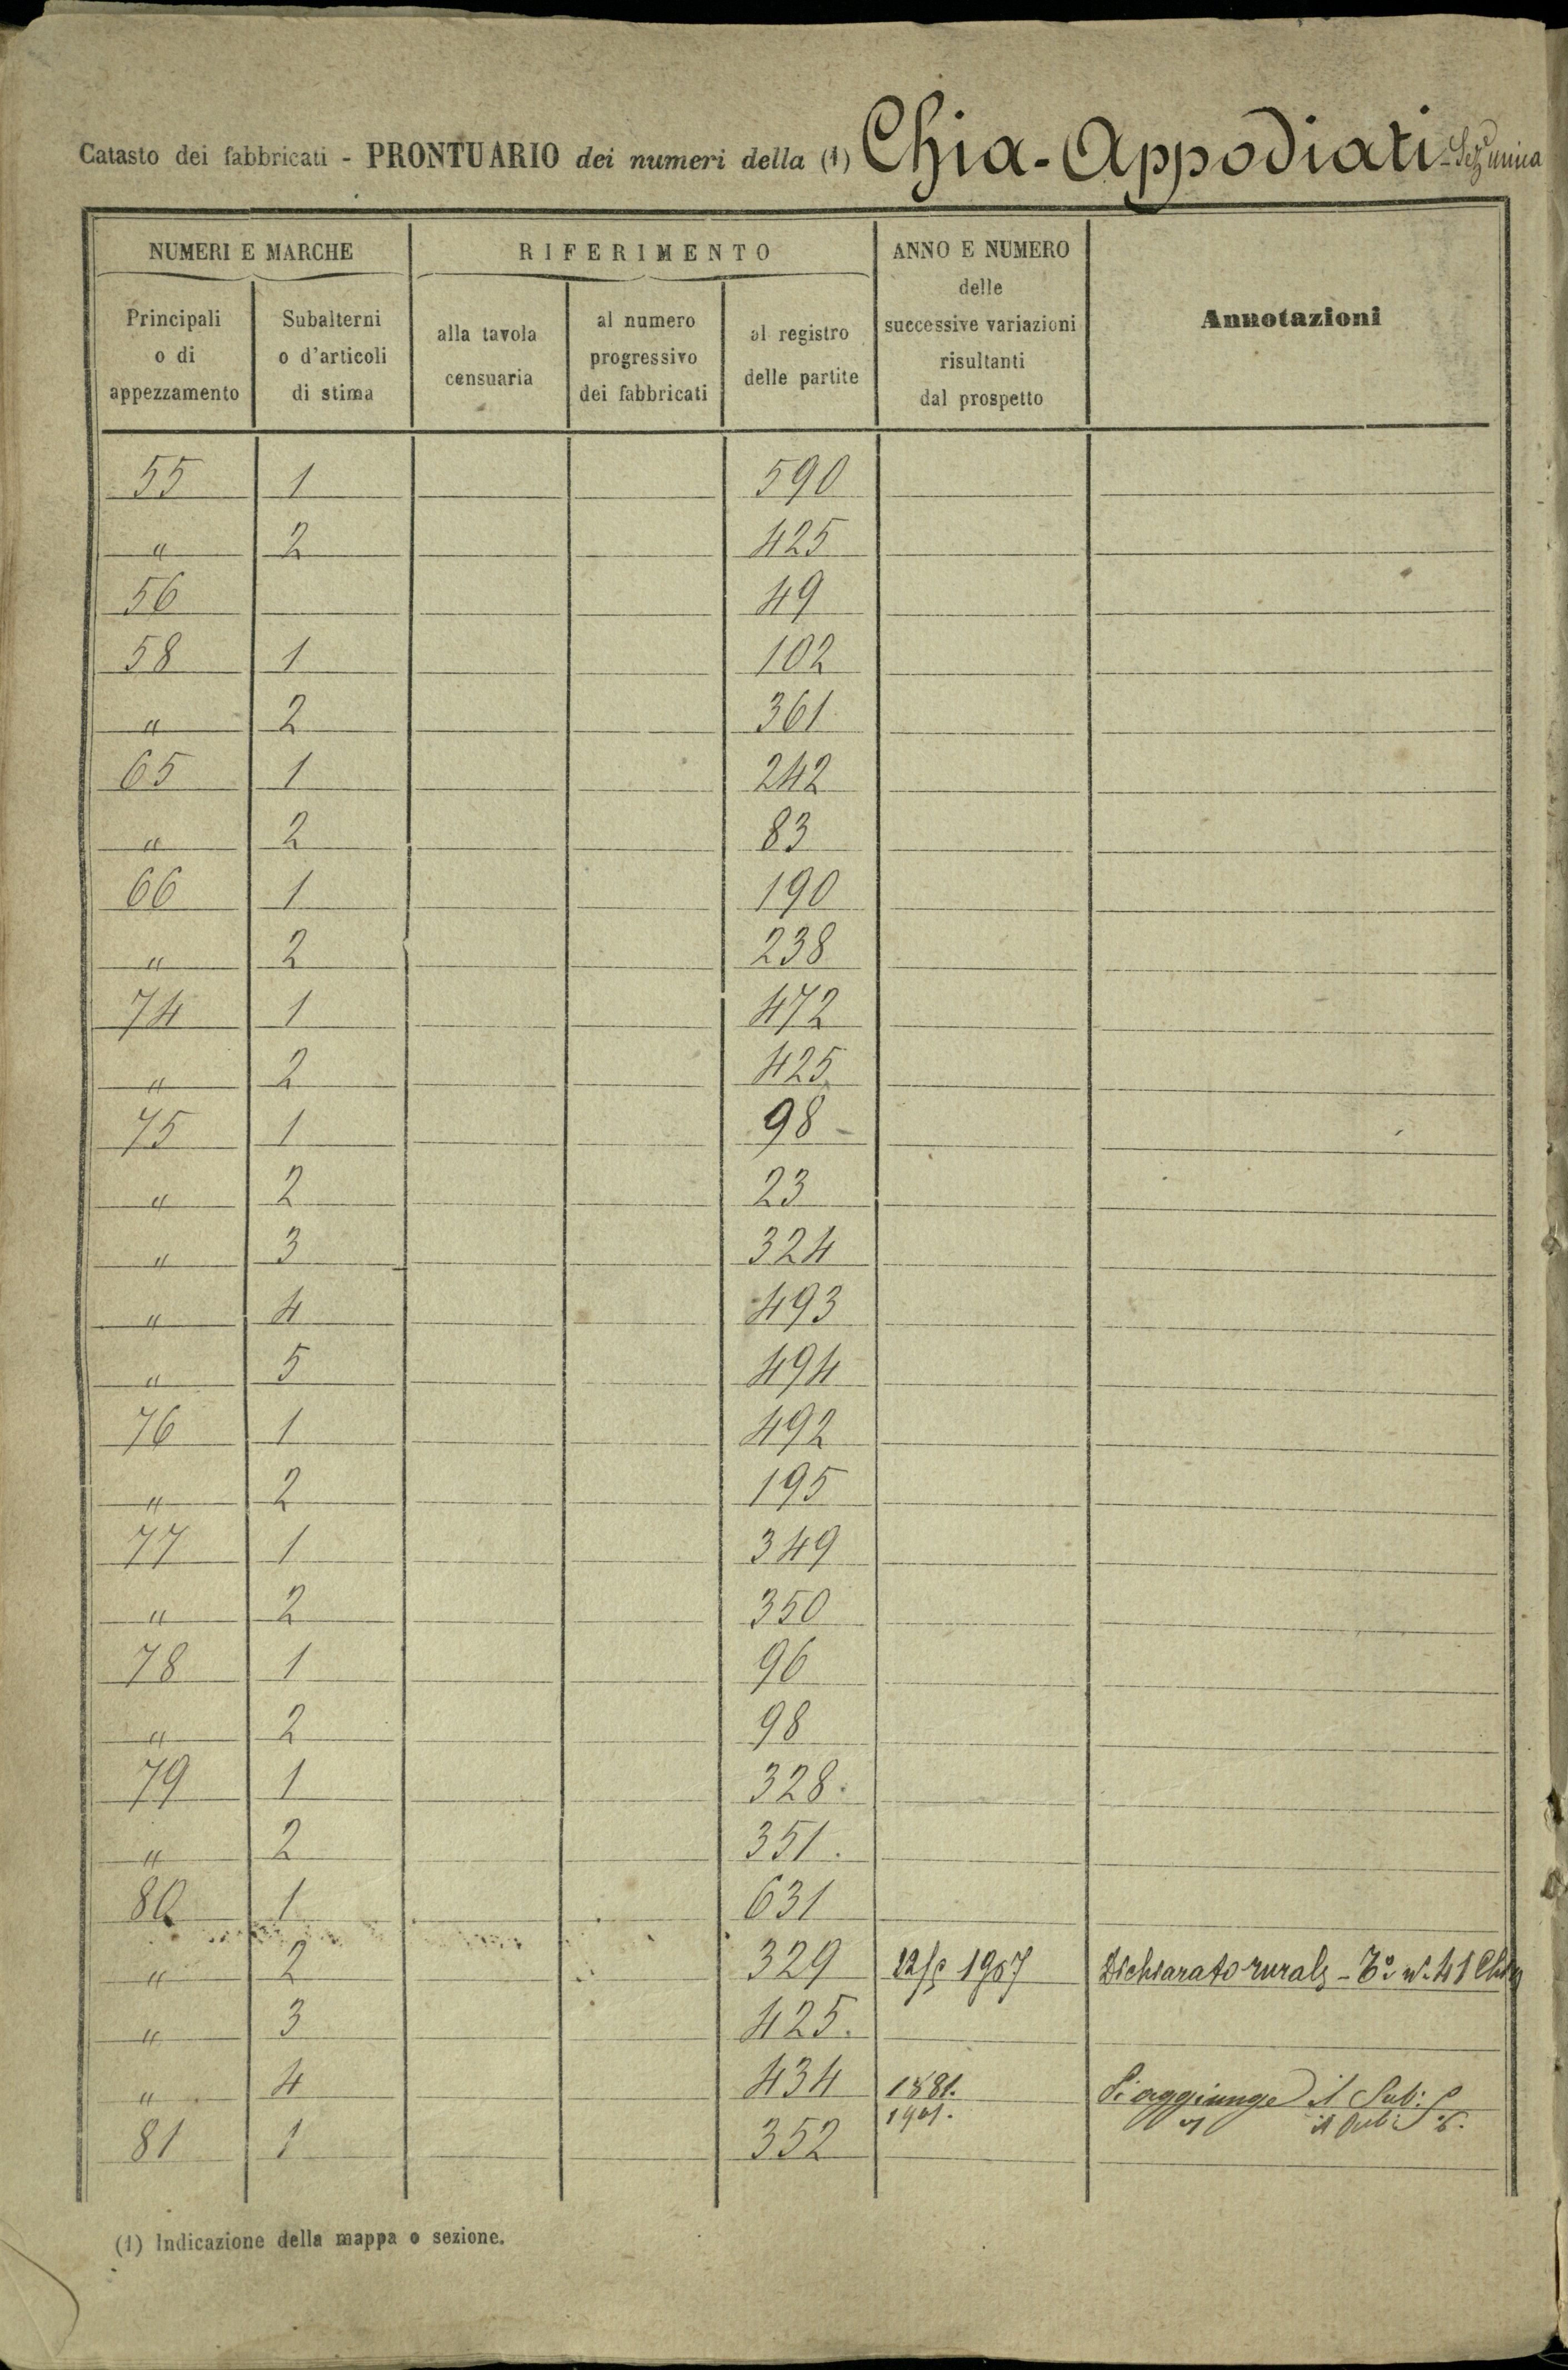 Catasto dei fabbricati - PRONTUARIO dei numeri della (1) Chia-Appodiati - Sez. unica
NUMERI E MARCHE
RIFERIMENTO
ANNO E NUMERO
delle
successive variazioni
risultanti
dal prospetto
Annotazioni
Principali
o di
appezzamento
Subalterni
o d'articoli
di stima
alla tavola
censuaria
al numero
progressivo
dei fabbricati
al registro
delle partite
55 1 590
" 2 425
56 49
58 1 102
" 2 361
65 1 242
" 2 83
66 1 190
" 2 238
74 1 472
" 2 425
75 1 98
" 2 23
" 3 324
" 4 493
" 5 494
76 1 492
" 2 195
77 1 349
" 2 350
78 1 96
" 2 98
79 1 328.
" 2 351.
80 1 631
" 2 329 1907 Dichiarato rurale - 41
" 3 425.
" 4 434 1881. Si aggiunge il Sub:
1901. " il Sub:
81 1 352
(1) Indicazione della mappa o sezione.